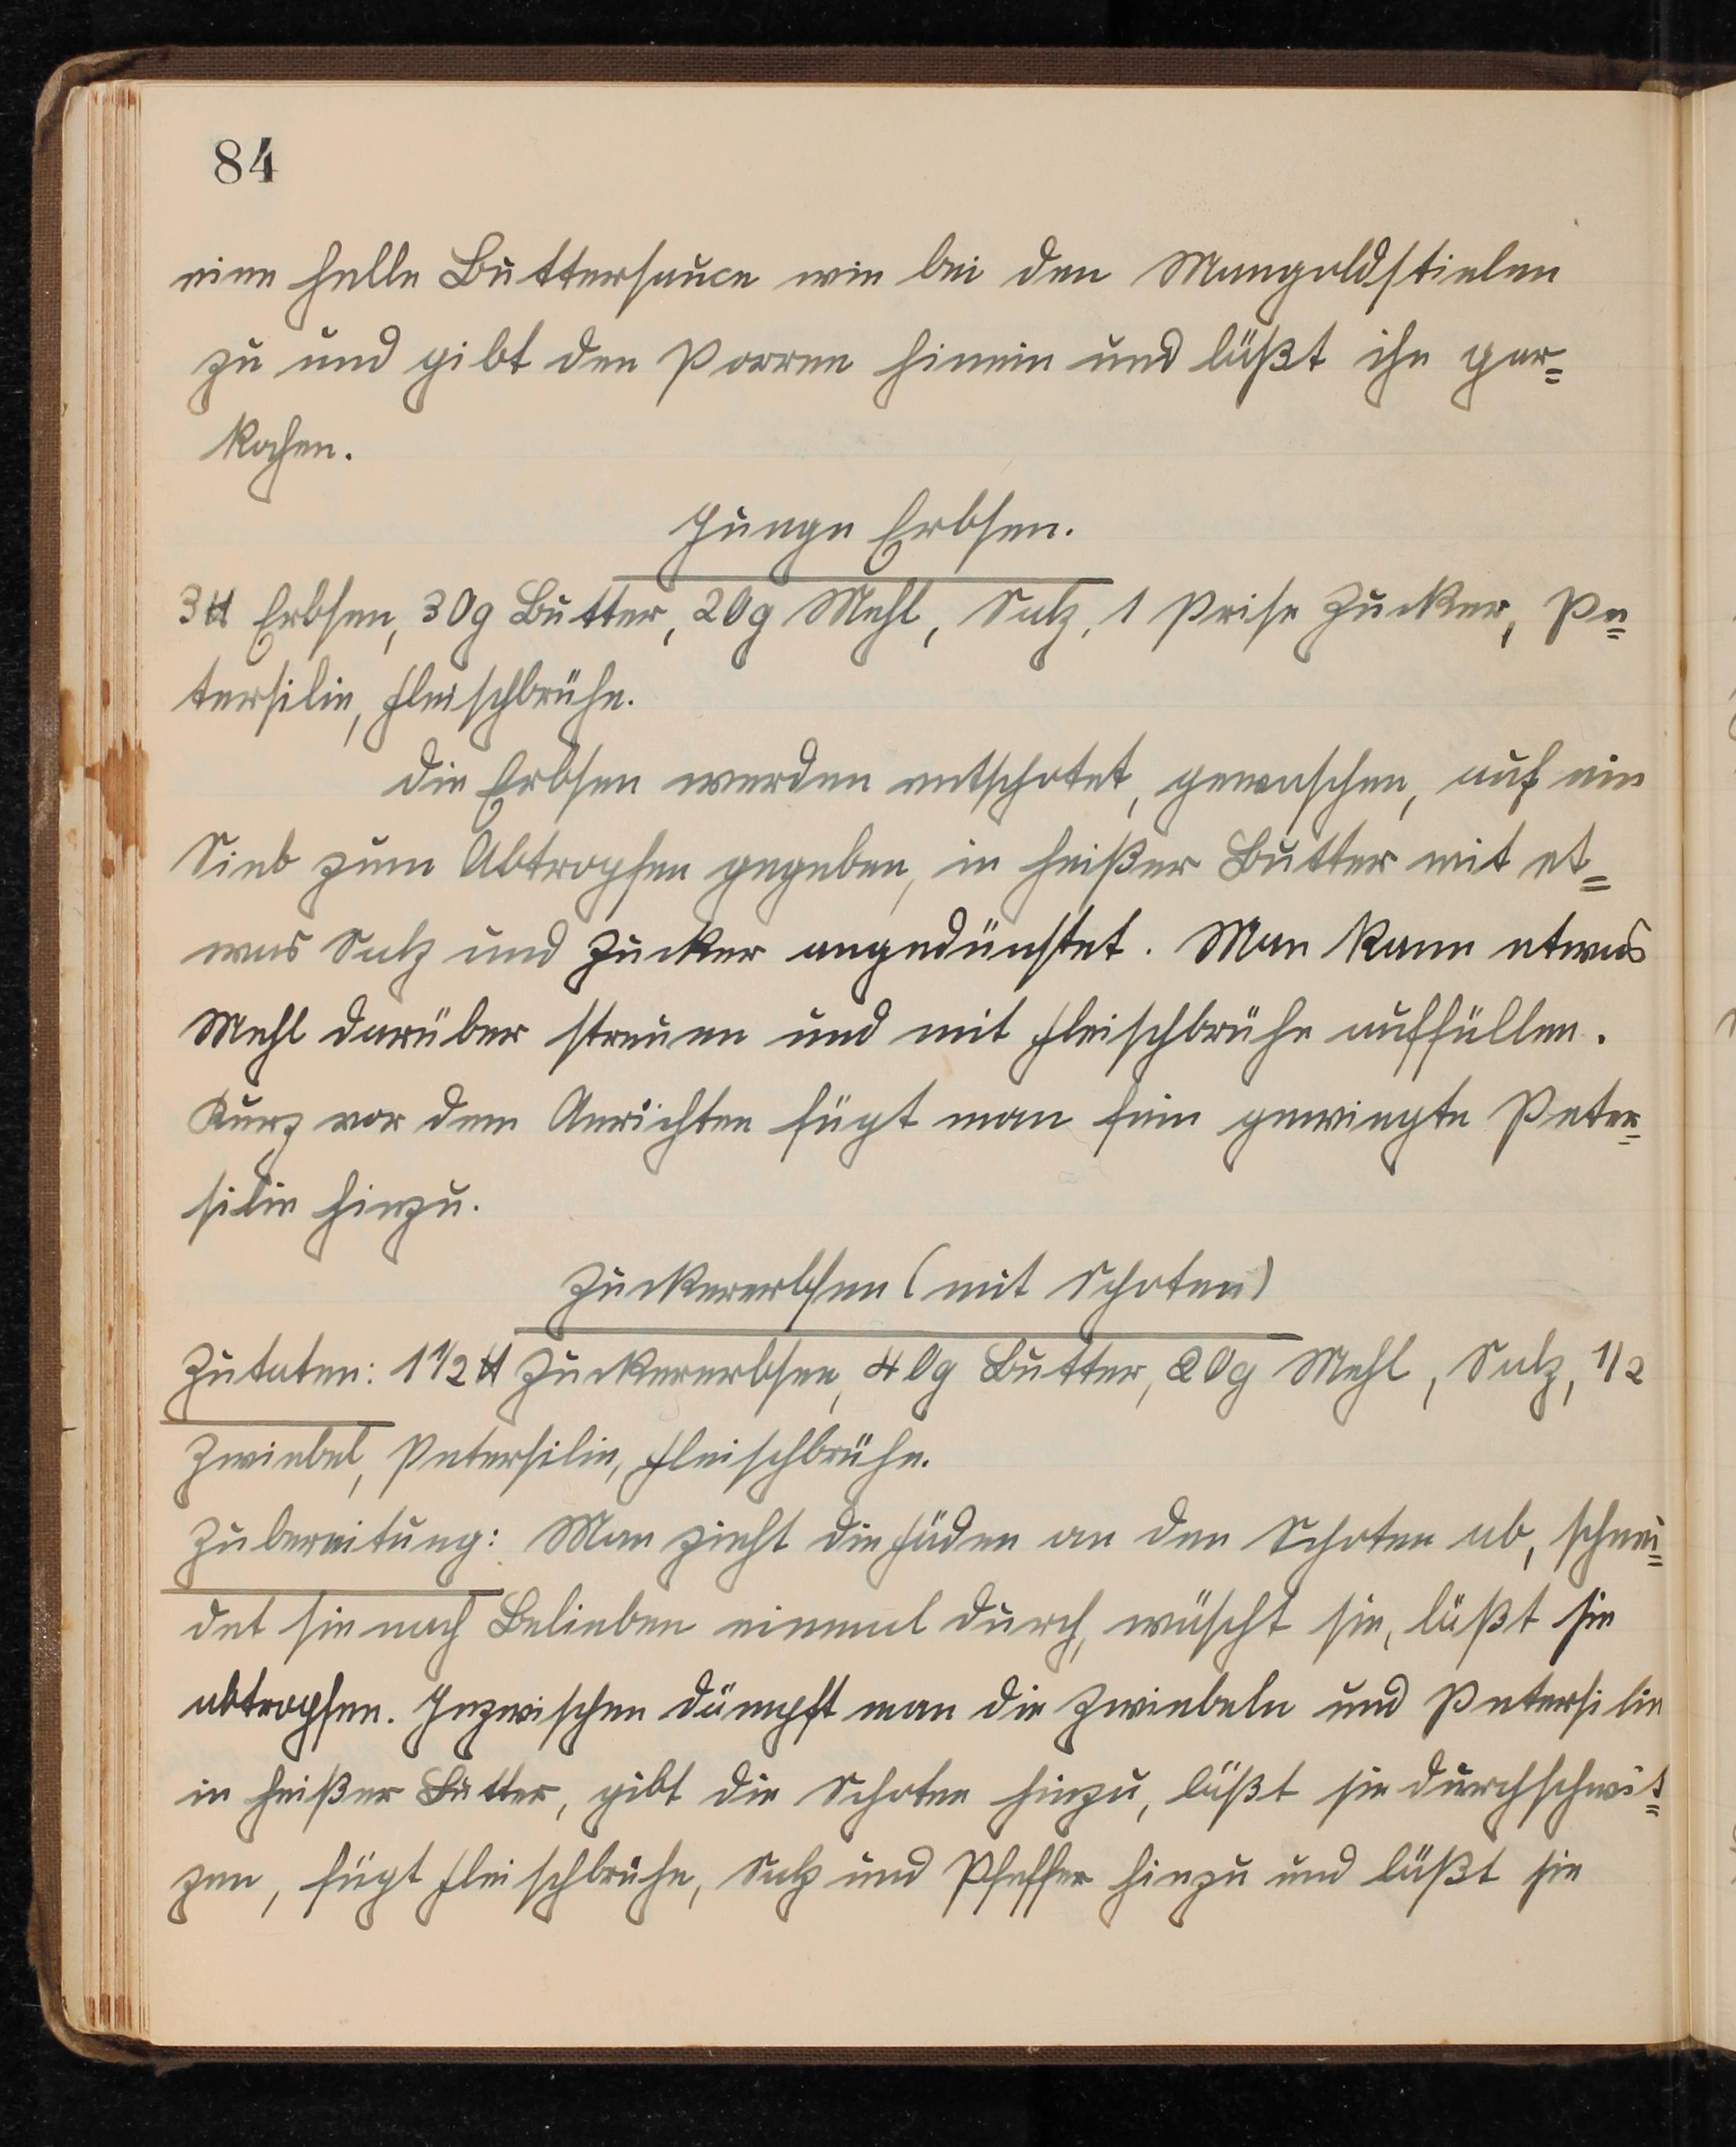 84
eine helle Buttersauce wie bei den Mangoldstielen
zu und gibt den Porren hinein und läßt ihn gar=
kochen.
Junge Erbsen.
3 ℔ Erbsen, 30g Butter, 20g Mehl, Salz, 1 Prise Zucker, Pe=
tersilie, Fleischbrühe.
Die Erbsen werden entschotet, gewaschen, auf ein
Sieb zum Abtropfen gegeben, in heißer Butter mit et=
was Salz und Zucker angedünstet. Man kann etwas
Mehl darüber streuen und mit Fleischbrühe auffüllen.
Kurz vor dem Anrichten fügt man fein gewiegte Peter=
silie hinzu.
Zuckererbsen (mit Schoten)
Zutaten: 1 1/2 ℔ Zuckererbsen, 40g Butter, 20g Mehl, Salz, 1/2
Zwiebel, Petersilie, Fleischbrühe.
Zubereitung: Man zieht die Fäden an den Schoten ab, schnei=
det sie nach Belieben einmal durch, wäscht sie, läßt sie
abtropfen. Inzwischen dämpft man die Zwiebeln und Petersilie
in heißer Butter, gibt die Schoten hinzu, läßt sie durchschwit=
zen, fügt Fleischbrühe, Salz und Pfeffer hinzu und läßt sie